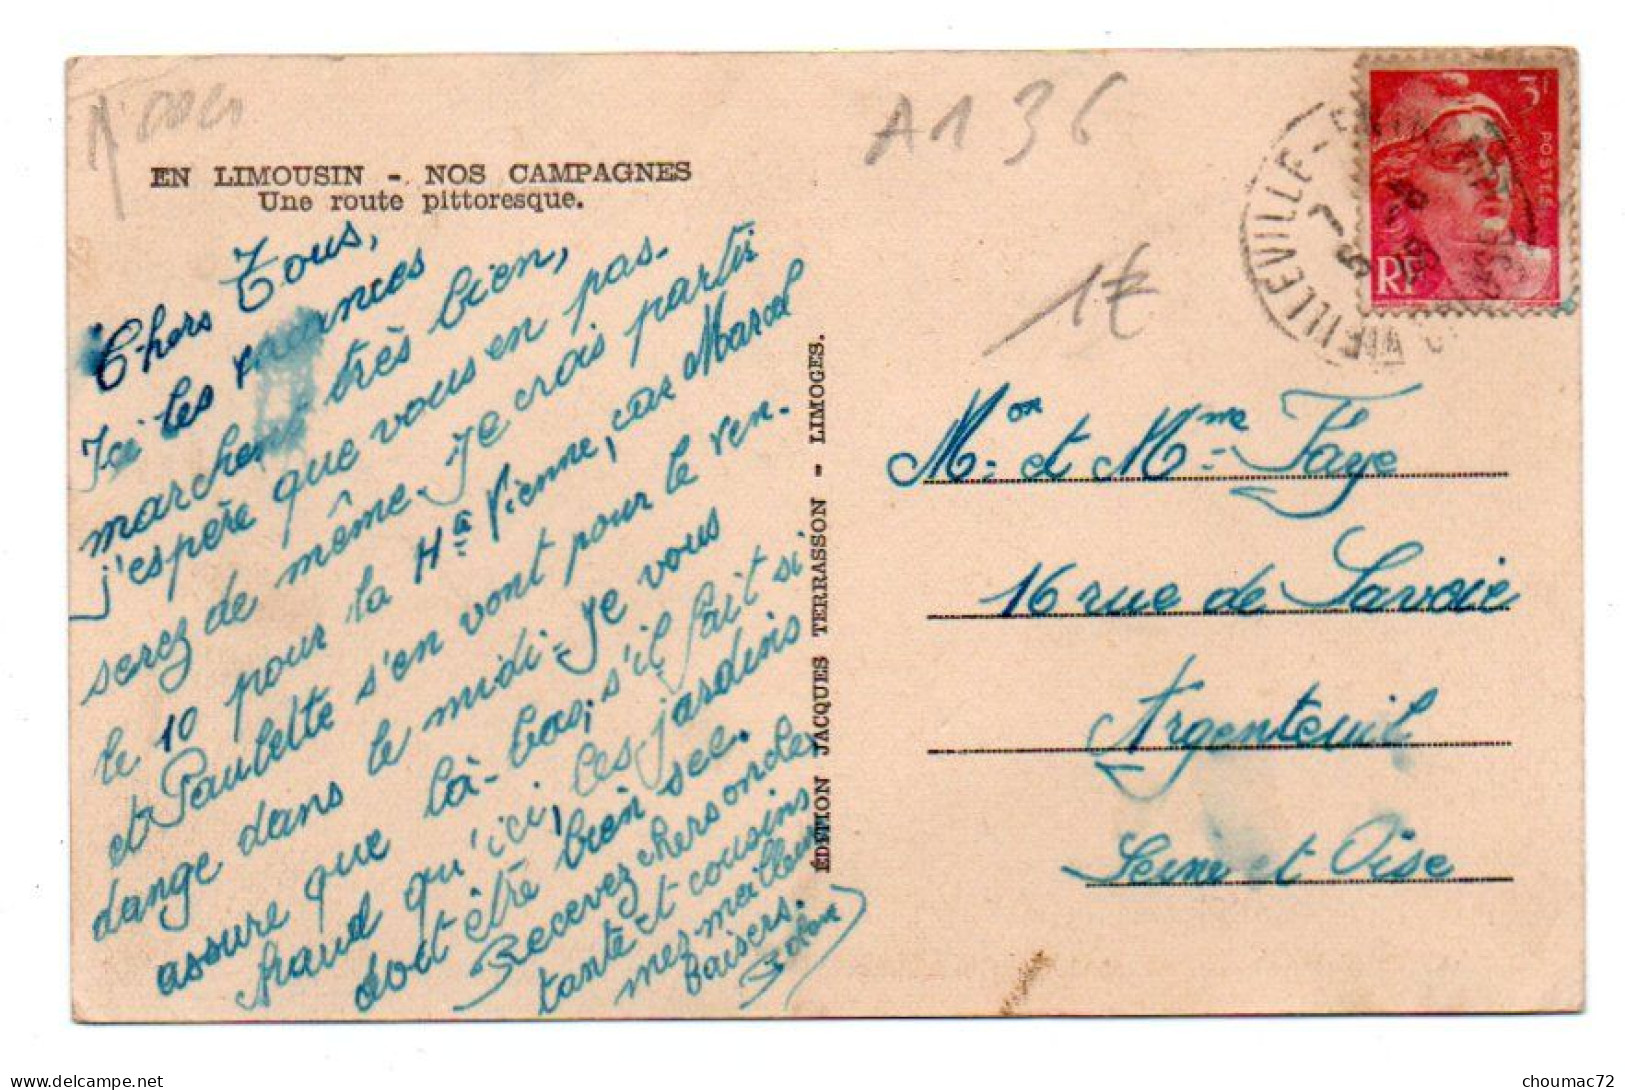 A136
EN LIMOUSIN - NOS CAMPAGNES
Une route pittoresque.
3f
POSTES
RF
VIEILLEVILLE
1€
Chers Tous,
Ici les vacances
marchent très bien,
j'espère que vous en pas-
serez de même. Je crois partir
le 10 pour la Hte Vienne, car Marcel
et Paulette s'en vont pour le ven-
dange dans le midi. Je vous
assure que là-bas, s'il fait si
chaud qu'ici, les jardins
doit être bien sec.
Recevez chers oncle,
tante et cousins
mes meilleurs
baisers.
ÉDITION JACQUES TERRASSON - LIMOGES.
Mon et Mme Faye
16 rue de Savoie
Argenteuil
Seine et Oise
delcampe.net
choumac72